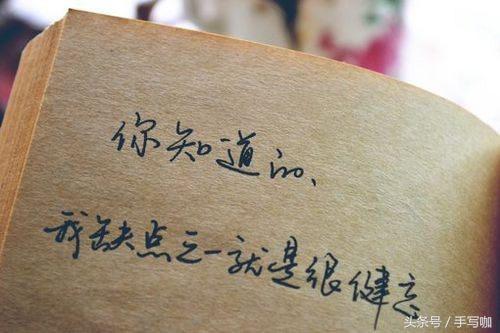 你知道的、
我缺点之一就是很健忘
头条号 / 手写咖